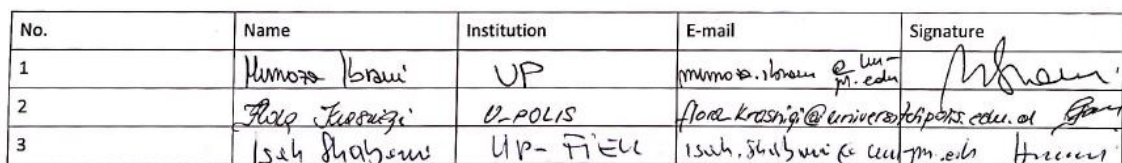 No. Name Institution E-mail Signature
1 Mimoza Ibrani UP mimoza.ibrani @ uni-pr.edu
2 Flora Krasniqi U_POLIS flora_krasniqi@universitetipolis.edu.al
3 Isak Shabani UP- FIEK isak.shabani @ uni-pr.edu